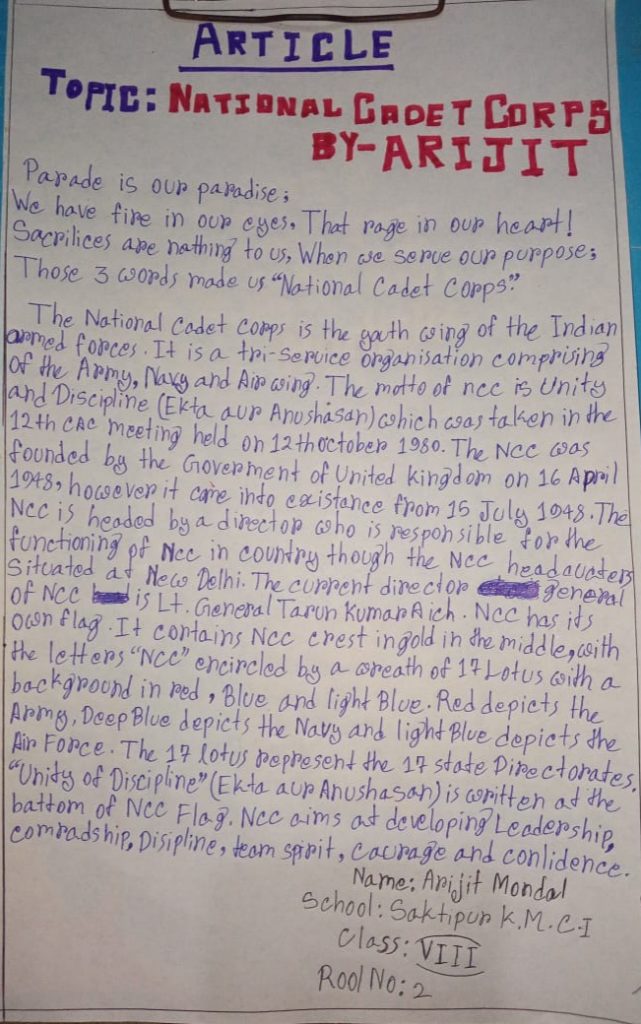 ARTICLE
TOPIC: NATIONAL CADET CORPS
BY-ARIJIT
Parade is our paradise;
We have fire in our eyes, That rage in our heart!
Sacrilices are nathing to us, When we serve our purpose;
Those 3 words made us "National Cadet Corps"
The National Cadet corps is the youth wing of the Indian
armed forces. It is a tri-service organisation comprising
of the Army, Navy and Air wing. The motto of ncc is Unity
and Discipline (Ekta aur Anushasan) which was taken in the
12th CAC meeting held on 12th october 1980. The NCC was
founded by the Goverment of United kingdom on 16 April
1948, however it came into existance from 15 July 1948. The
NCC is headed by a director who is responsible for the
functioning of NCC in country though the NCC headquaters
Situated at New Delhi. The current director general
of NCC is Lt. General Tarun Kumar Aich. NCC has its
own flag. It contains NCC crest in gold in the middle, with
the letters "NCC" encircled by a wreath of 17 Lotus with a
background in red, Blue and light Blue. Red depicts the
Army, Deep Blue depicts the Navy and light Blue depicts the
Air Force. The 17 lotus represent the 17 state Directorates.
"Unity of Discipline" (Ekta aur Anushasan) is written at the
battom of NCC Flag. NCC aims at developing Leadership,
comradship, Disipline, team spirit, Caurage and conlidence.
Name: Arijit Mondal
School: Saktipur K.M.C.I
Class: VIII
Rool No: 2